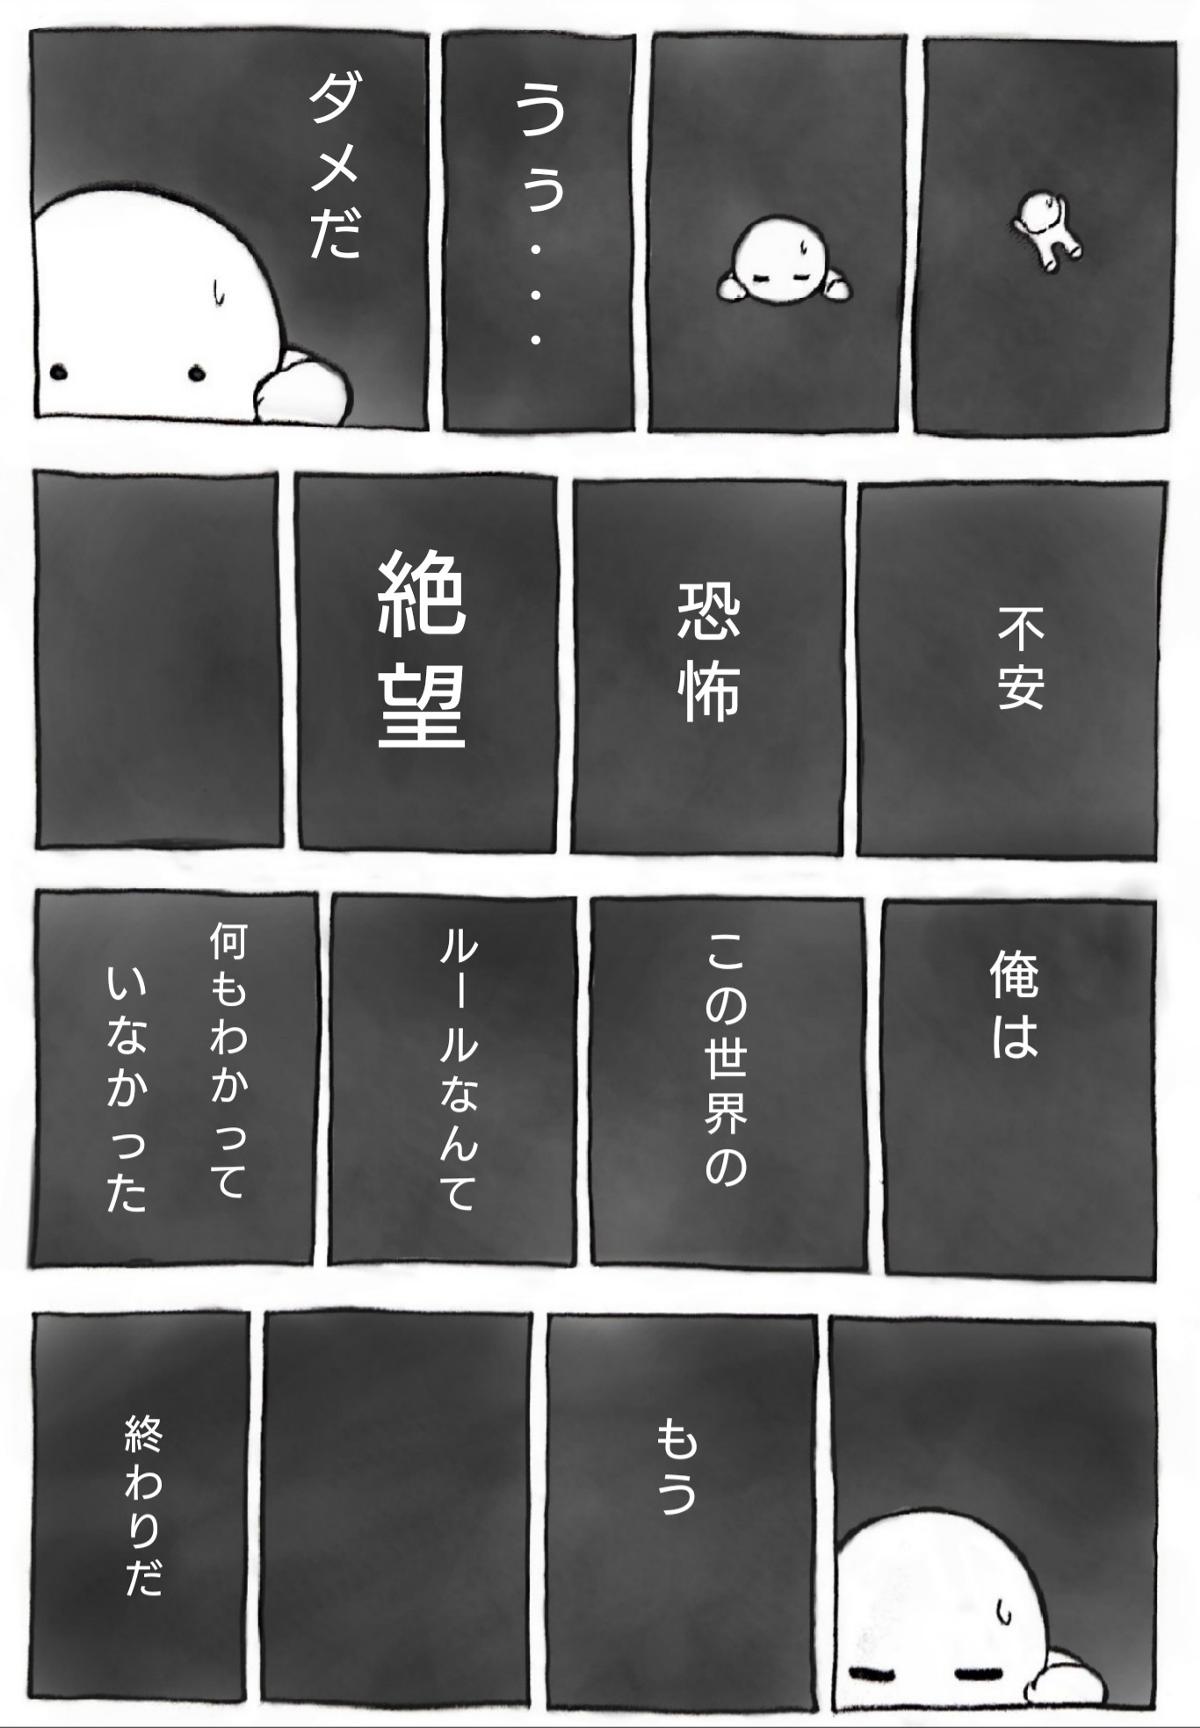 うぅ・・・
ダメだ
不安
恐怖
絶望
俺は
この世界の
ルールなんて
何もわかって
いなかった
もう
終わりだ